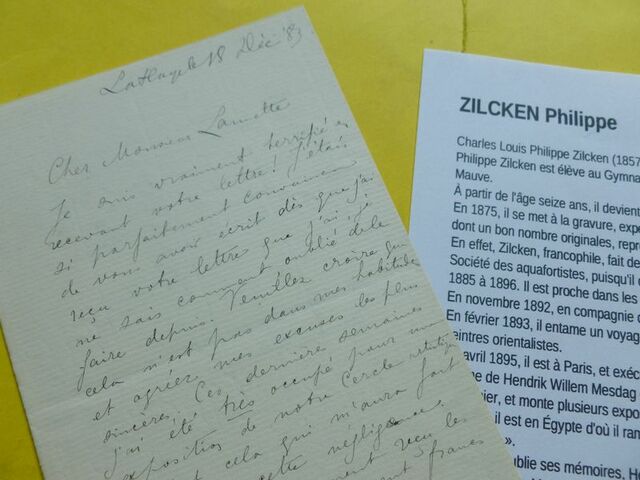 La Haye le 18 Déc '83
Cher Monsieur
Je suis vraiment terrifié en
recevant votre lettre! J'étais
si parfaitement convaincu
de vous avoir écrit dès que j'ai
reçu votre lettre que j'ai, je
ne sais comment oublié de le
faire depuis. Veuillez croire que
cela n'est pas dans mes habitudes
et agréez mes excuses les plus
sincères. Ces dernières semaines
j'ai été très occupé pour une
exposition de notre Cercle artistique
et cela qui m'aura fait
cette négligence.
reçu les
francs
ZILCKEN Philippe
Charles Louis Philippe Zilcken (1857
Philippe Zilcken est élève au Gymna
Mauve.
À partir de l'âge seize ans, il devient
En 1875, il se met à la gravure, expé
dont un bon nombre originales, repr
En effet, Zilcken, francophile, fait de
Société des aquafortistes, puisqu'il c
1885 à 1896. Il est proche dans les
En novembre 1892, en compagnie d
En février 1893, il entame un voyag
eintres orientalistes.
avril 1895, il est à Paris, et exéc
e de Hendrik Willem Mesdag
ier, et monte plusieurs expo
il est en Égypte d'où il ran
».
ublie ses mémoires, He